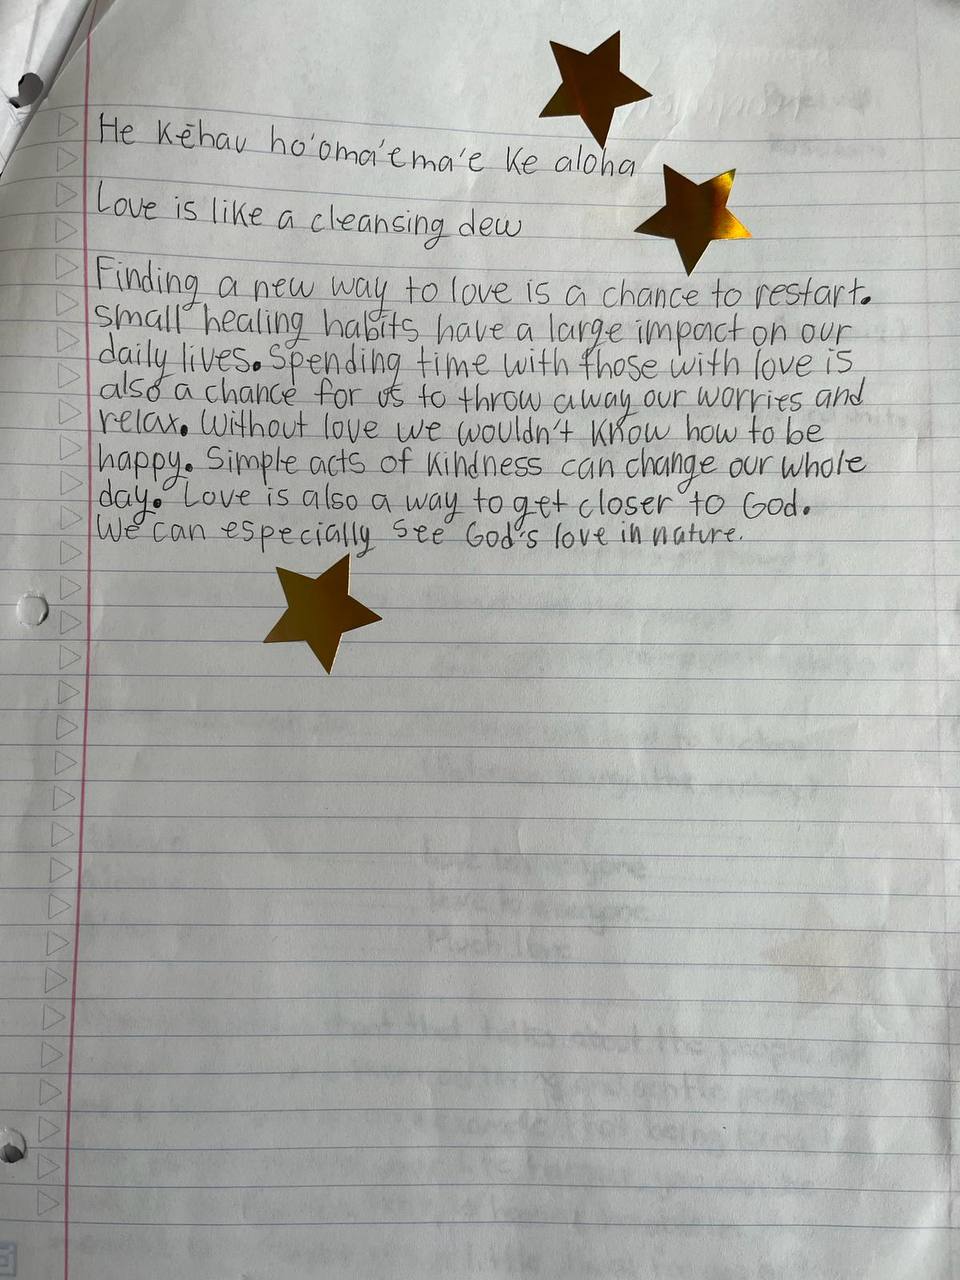 He Kēhau ho'oma'ema'e Ke aloha
Love is like a cleansing dew
Finding a new way to love is a chance to restart.
Small healing habits have a large impact on our
daily lives. Spending time with those with love is
also a chance for us to throw away our worries and
relax. Without love we wouldn't know how to be
happy. Simple acts of kindness can change our whole
day. Love is also a way to get closer to God.
We can especially see God's love in nature.